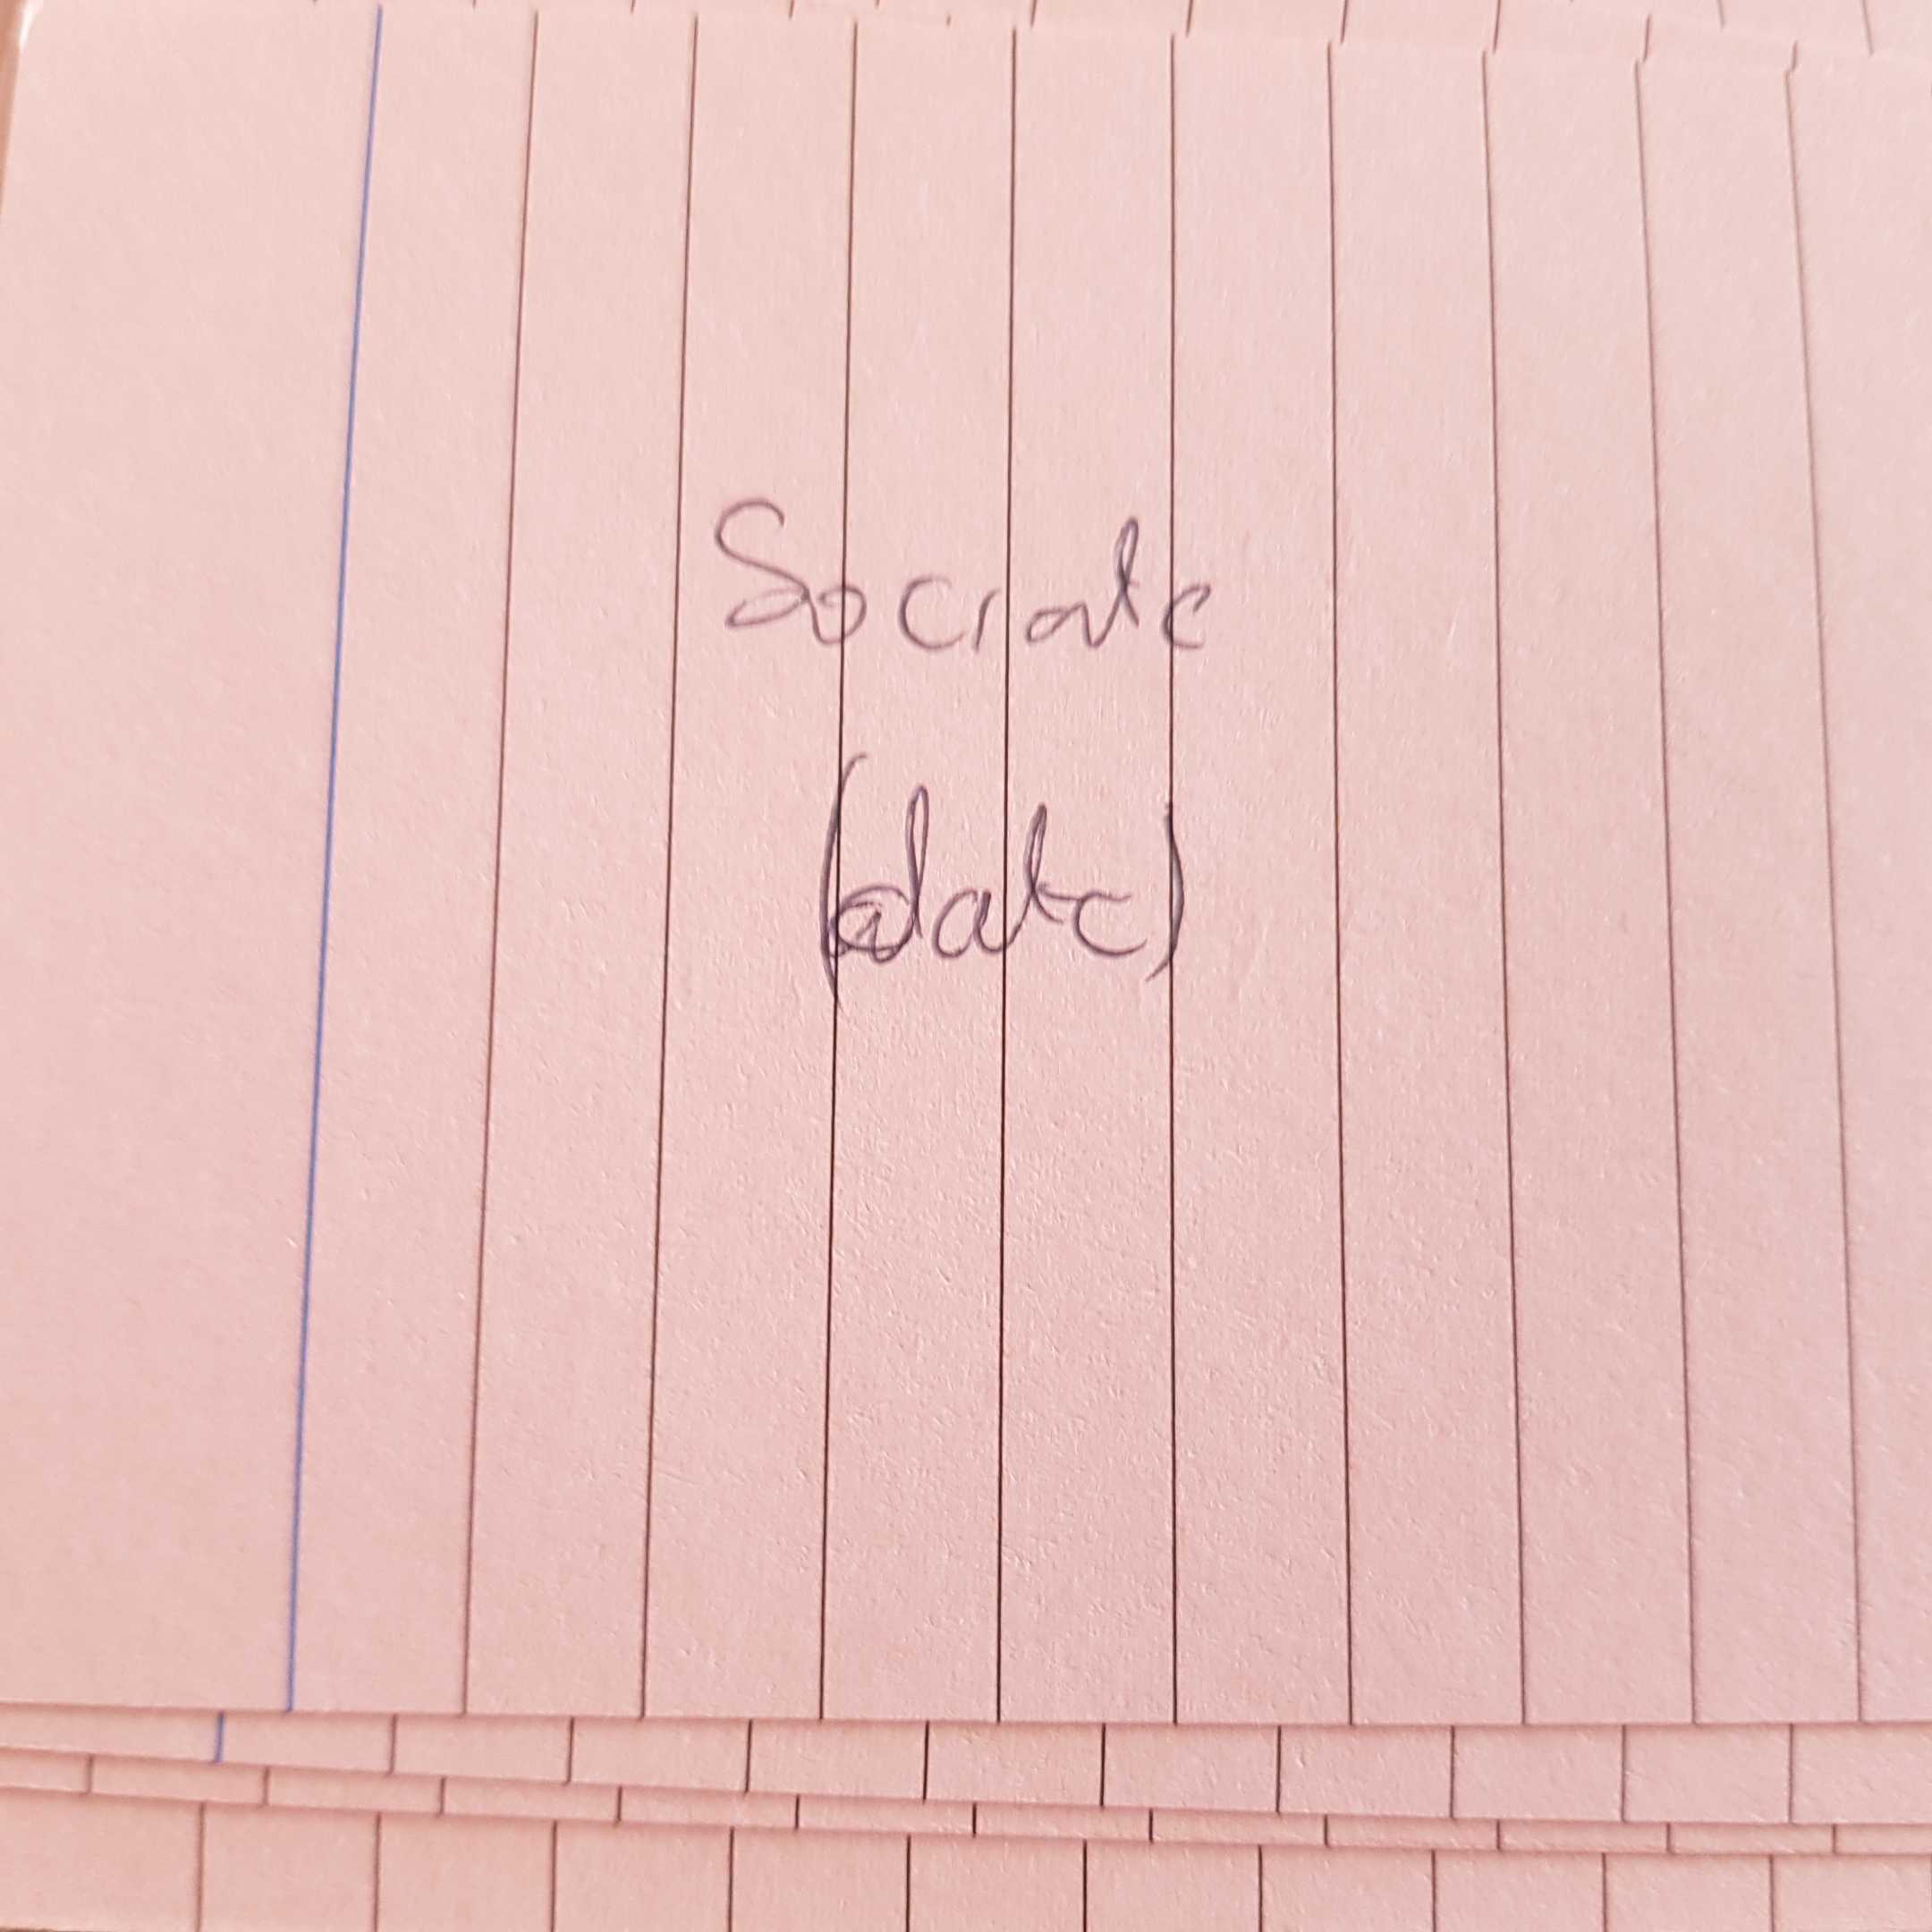 Socrate
(date)